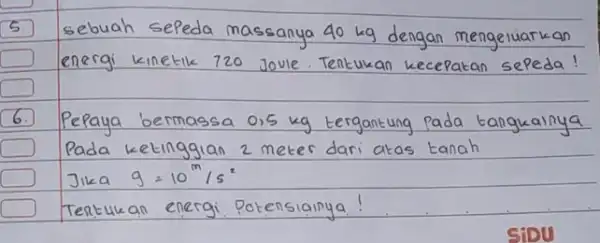 5 sebuah sepeda massanya 40 kg dengan mengeluarkan
energi kinetik 720 Joule. Tentukan kecepatan sepeda !
6. Pepaya bermassa 0,5 kg tergantung pada tangkainya
Pada ketinggian 2 meter dari atas tanah
Jika g = 10 m/s²
Tentukan energi Potensialnya !
SiDU